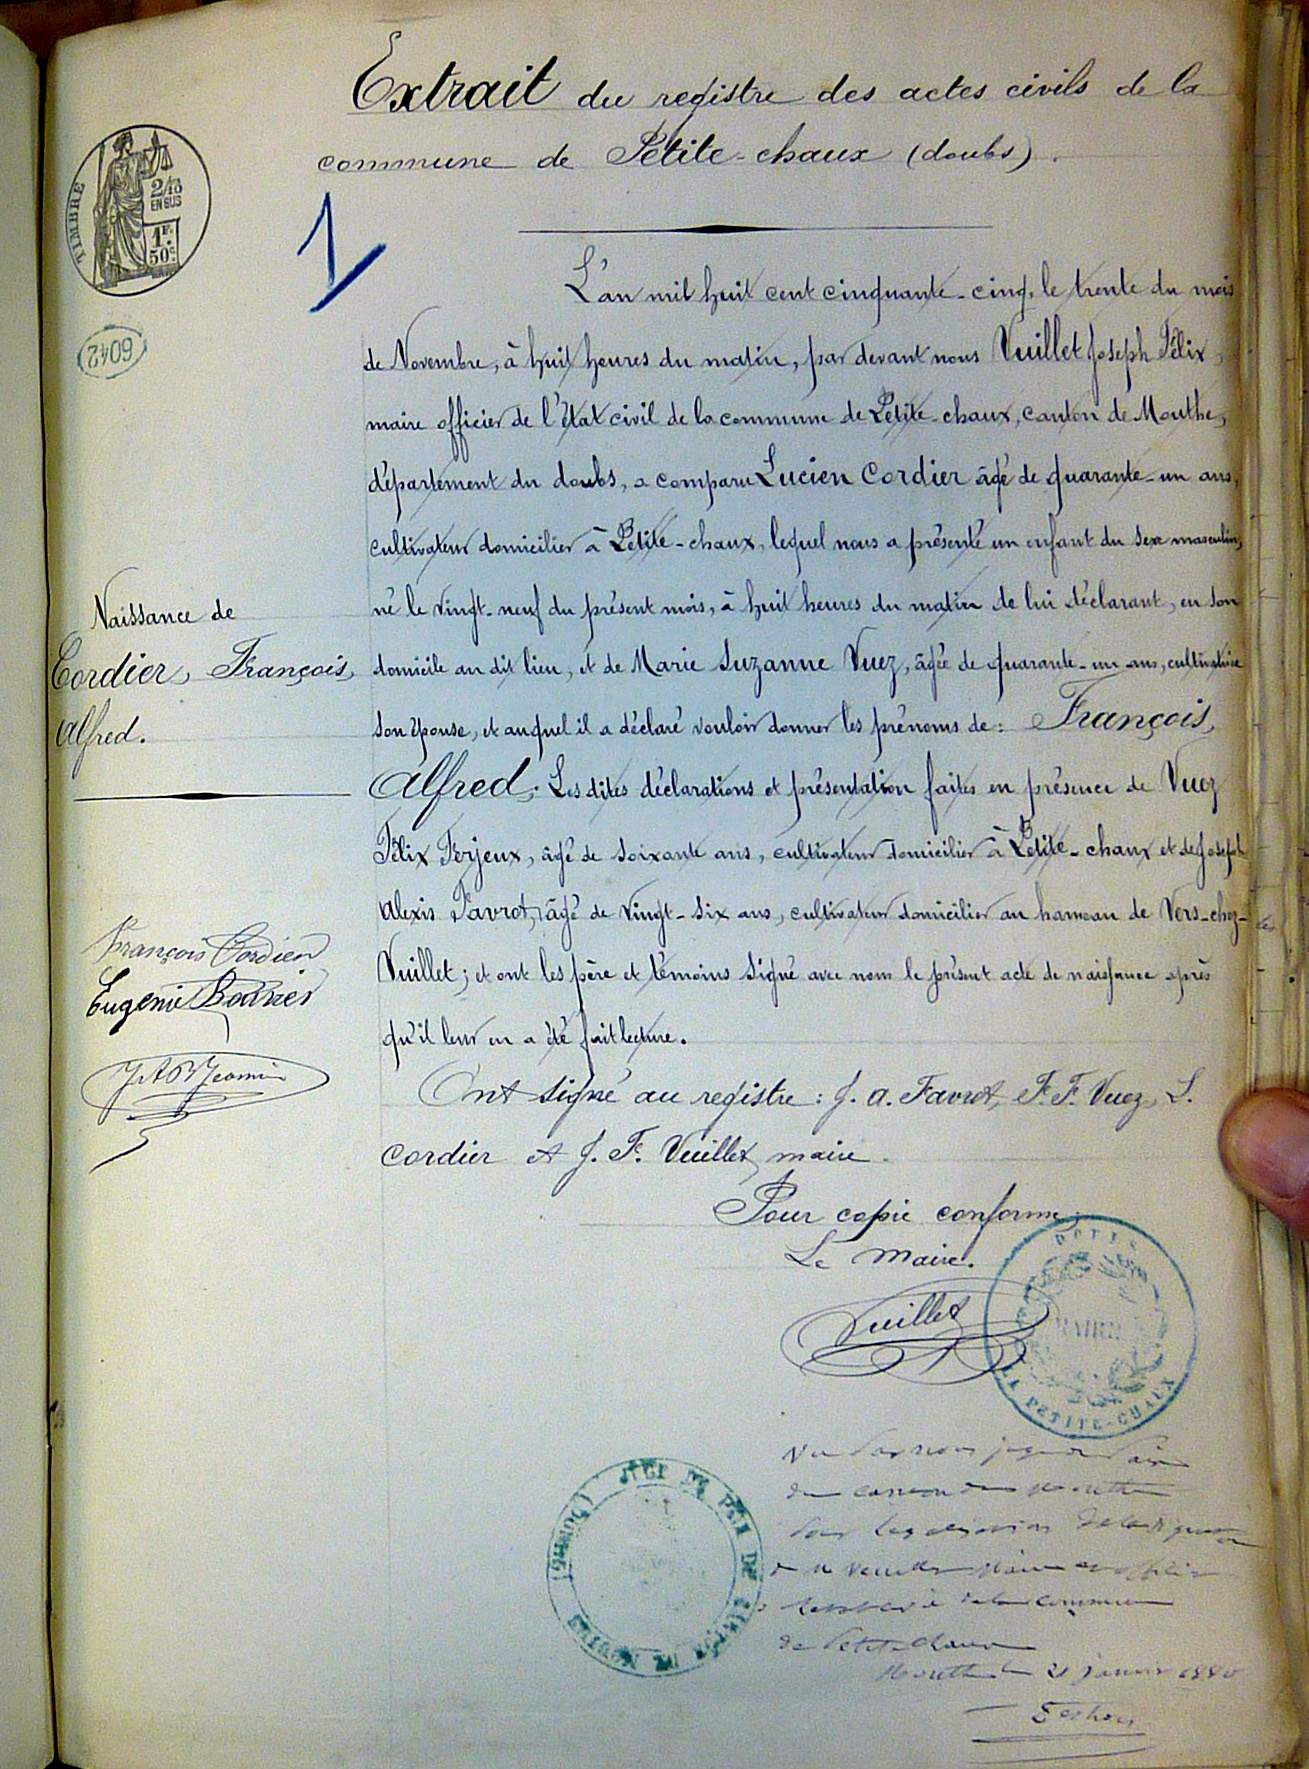 Extrait du registre des actes civils de la
commune de Petite-chaux (doubs).
TIMBRE
2/10
EN SUS
1F.
50c
6042
1
L'an mil huit cent cinquante-cinq, le trente du mois
de Novembre, à huit heures du matin, par devant nous Vuillet Joseph Félix,
maire officier de l'état civil de la commune de Petite-chaux, canton de Mouthe,
département du doubs, a comparu Lucien Cordier âgé de quarante-un ans,
cultivateur domicilier à Petite-chaux, lequel nous a présenté un enfant du sexe masculin,
né le vingt-neuf du présent mois, à huit heures du matin de lui déclarant, en son
domicile au dit lieu, et de Marie Suzanne Vuez, âgée de quarante-un ans, cultivatrice
son épouse, et auquel il a déclaré vouloir donner les prénoms de: François,
Alfred; Les dites déclarations et présentation faites en présence de Vuez
Félix Ferjeux, âgé de soixante ans, cultivateur domicilier à Petite-chaux et de Joseph
Alexis Favrot, âgé de vingt-six ans, cultivateur domicilier au hameau de Vers-chez-
Vuillet; et ont les père et témoins signé avec nous le présent acte de naissance après
qu'il leur en a été fait lecture.
Ont signé au registre: J. A. Favrot, F. F. Vuez, L.
Cordier et J. F. Vuillet, maire.
Pour copie conforme;
Le Maire.
Vuillet
DOUBS
MAIRIE
LA PETITE-CHAUX
Naissance de
Cordier, François,
Alfred.
François Cordier
Eugénie
Vu par nous juge de Paix
du canton de Mouthe
pour légalisation de la signature
de M Vuillet Maire et officier
de l'état civil de la commune
de Petite Chaux
Mouthe le 21 janvier 1880
JUGE DE PAIX DE CANTON DE MOUTHE (DOUBS)